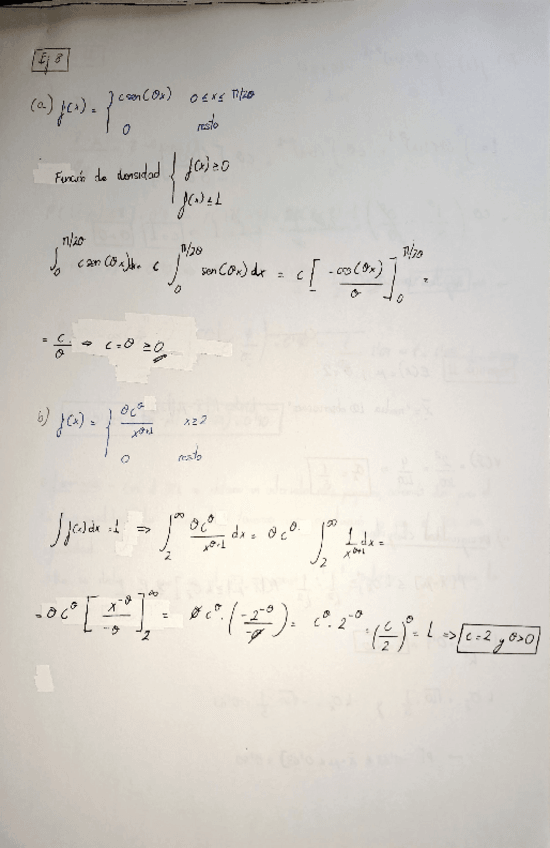 Ej 8
(a) f(x) = { c sen(θx)   0 ≤ x ≤ π/2θ
0   resto
Función de densidad { f(x) ≥ 0
f(x) ≤ 1
∫₀^{π/2θ} c sen(θx) dx = c ∫₀^{π/2θ} sen(θx) dx = c [ -cos(θx) / θ ]₀^{π/2θ} =
= c/θ → c = θ ≥ 0
b) f(x) = { θc^θ / x^{θ+1}   x ≥ 2
0   resto
∫ f(x) dx = 1 ⇒ ∫₂^∞ θc^θ / x^{θ+1} dx = θc^θ · ∫₂^∞ 1 / x^{θ+1} dx =
= θc^θ [ x^{-θ} / -θ ]₂^∞ = θc^θ · ( -2^{-θ} / -θ ) = c^θ · 2^{-θ} = (c/2)^θ = 1 ⇒ c = 2 y θ > 0